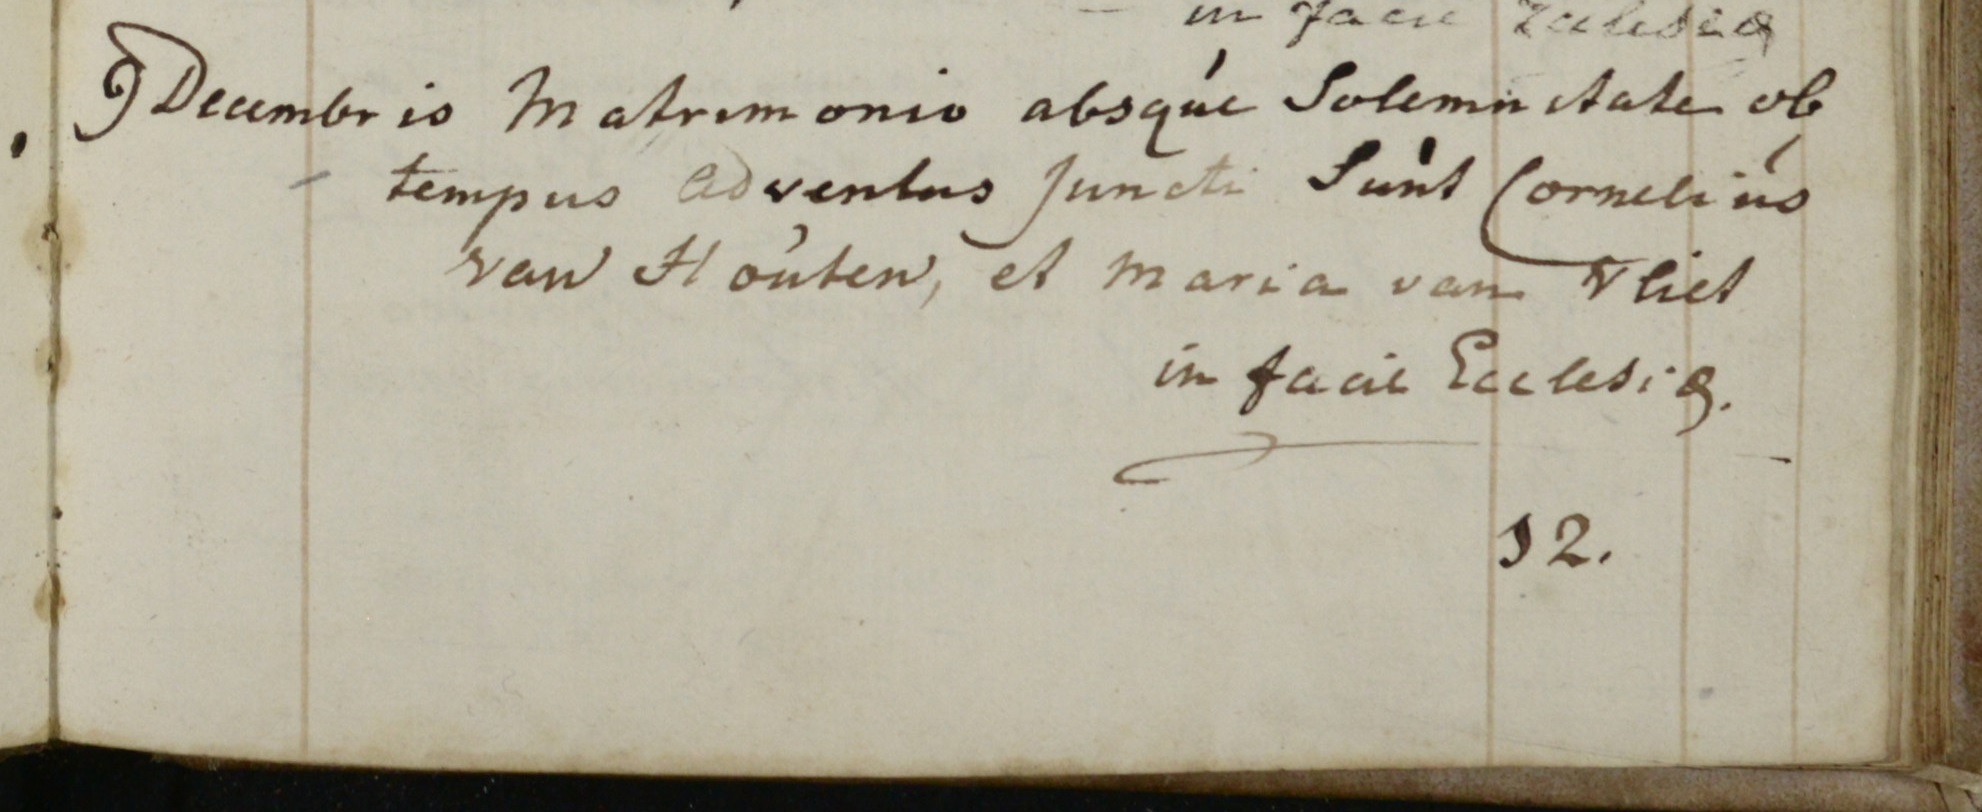 in facie Ecclesiæ
9 Decembris Matrimonio absque Solemnitate ob
tempus Adventus Juncti Sunt Cornelius
van Houten, et Maria van Vliet
in facie Ecclesiæ.
12.